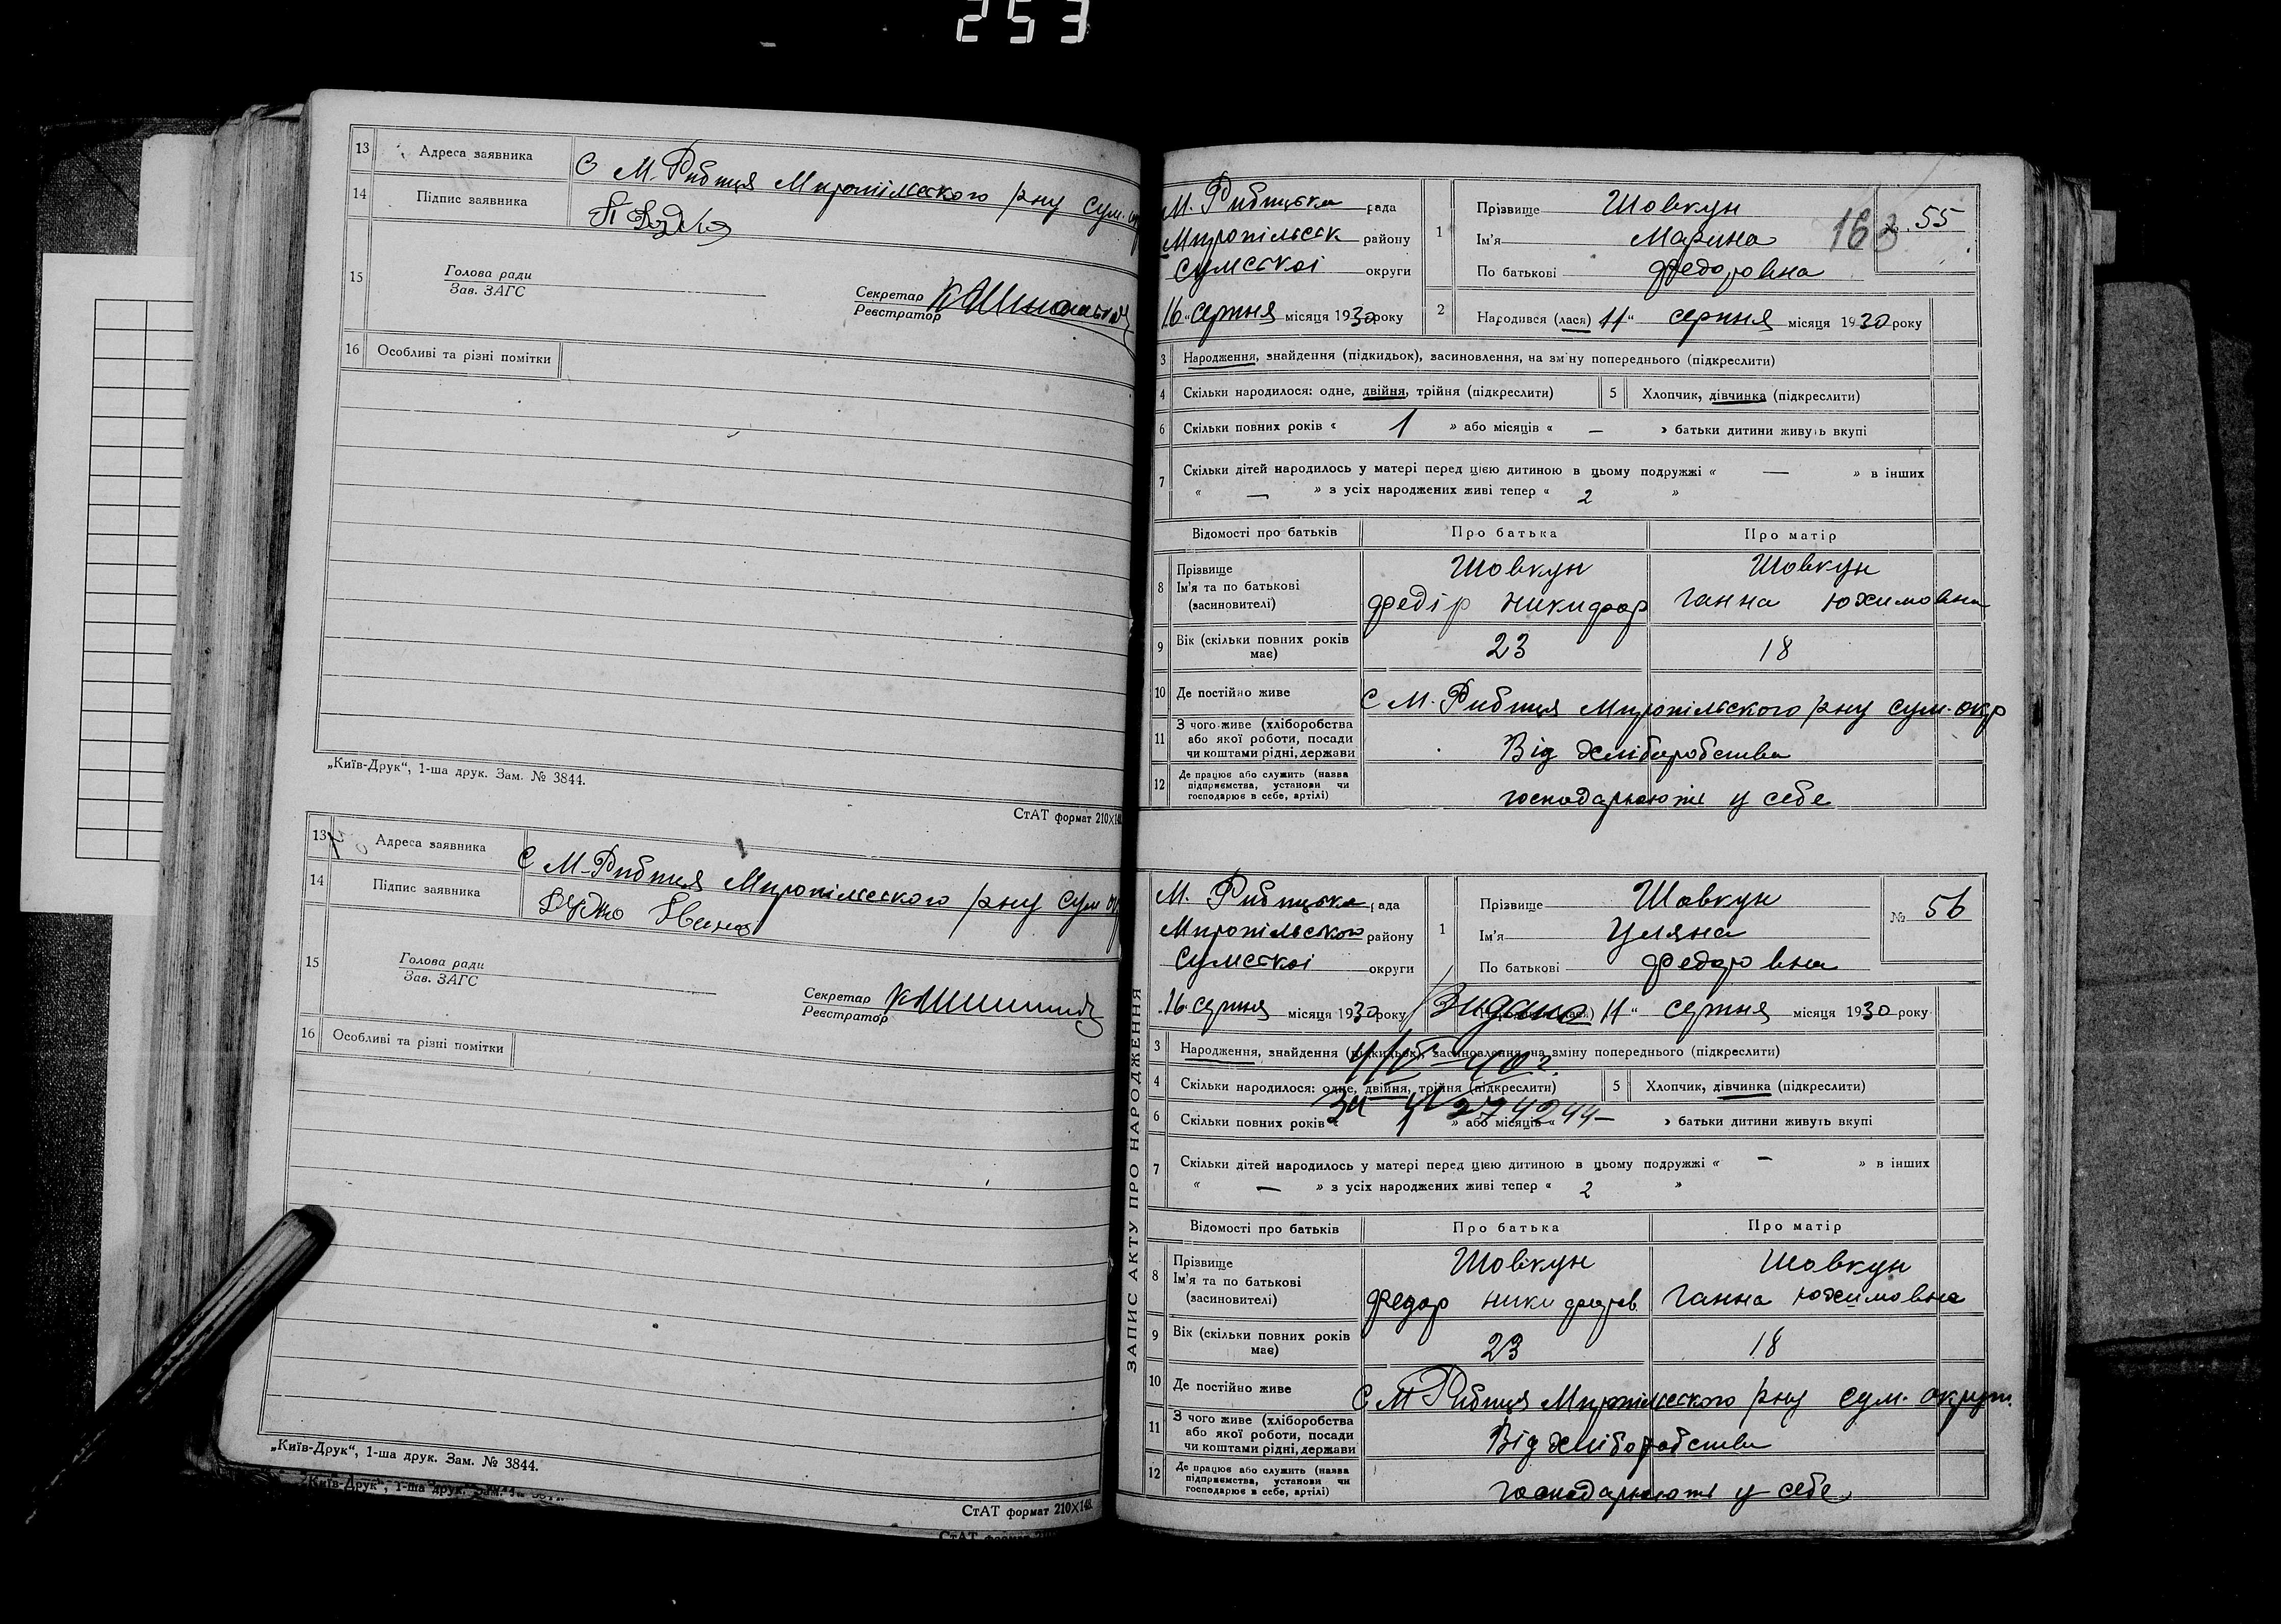 253
13 Адреса заявника С М. Рибиця Миропільського р-ну Сум.
14 Підпис заявника
15 Голова ради
Зав. ЗАГС
Секретар
Реєстратор
16 Особливі та різні помітки
„Київ-Друк“, 1-ша друк. Зам. № 3844.
СтАТ формат 210×148.
13 Адреса заявника С М. Рибиця Миропільського р-ну Сум
14 Підпис заявника
15 Голова ради
Зав. ЗАГС
Секретар
Реєстратор
16 Особливі та різні помітки
„Київ-Друк“, 1-ша друк. Зам. № 3844.
СтАТ формат 210×148.
М. Рибицька рада
Миропільськ району
Сумської округи
16 „ серпня місяця 1930 року
1 Прізвище Шовкун
Ім'я Марина
По батькові Федоровна
163
№ 55
2 Народився (лася) 11 “ серпня місяця 1930 року
3 Народження, знайдення (підкидьок), засиновлення, на зміну попереднього (підкреслити)
4 Скільки народилося: одне, двійня, трійня (підкреслити) 5 Хлопчик, дівчинка (підкреслити)
6 Скільки повних років « 1 » або місяців « — » батьки дитини живуть вкупі
7 Скільки дітей народилось у матері перед цією дитиною в цьому подружжі « — » в інших
« — » з усіх народжених живі тепер « 2 »
Відомості про батьків Про батька Про матір
8 Прізвище Шовкун Шовкун
Ім'я та по батькові
(засиновителі) Федір Никифор Ганна Юхимовна
9 Вік (скільки повних років має) 23 18
10 Де постійно живе С М. Рибиця Миропільского р-ну Сум. окр
11 З чого живе (хліборобства
або якої роботи, посади
чи коштами рідні, держави Від хліборобства
12 Де працює або служить (назва
підприємства, установи чи
господарює в себе, артілі) господарюють у себе
ЗАПИС АКТУ ПРО НАРОДЖЕННЯ
М. Рибицька рада
Миропільського району
Сумської округи
16 серпня місяця 1930 року
1 Прізвище Шовкун
Ім'я Уляна
По батькові Федоровна
№ 56
Видано 11 “ серпня місяця 1930 року
3 Народження, знайдення (підкидьок), засиновлення, на зміну попереднього (підкреслити)
4 Скільки народилося: одне, двійня, трійня (підкреслити) 5 Хлопчик, дівчинка (підкреслити)
6 Скільки повних років « 1 » або місяців « — » батьки дитини живуть вкупі
7 Скільки дітей народилось у матері перед цією дитиною в цьому подружжі « — » в інших
« — » з усіх народжених живі тепер « 2 »
Відомості про батьків Про батька Про матір
8 Прізвище Шовкун Шовкун
Ім'я та по батькові
(засиновителі) Федор Никифоров Ганна Юхимовна
9 Вік (скільки повних років має) 23 18
10 Де постійно живе С М Рибиця Миропільского р-ну Сум. округи.
11 З чого живе (хліборобства
або якої роботи, посади
чи коштами рідні, держави Від хліборобства
12 Де працює або служить (назва
підприємства, установи чи
господарює в себе, артілі) господарюють у себе